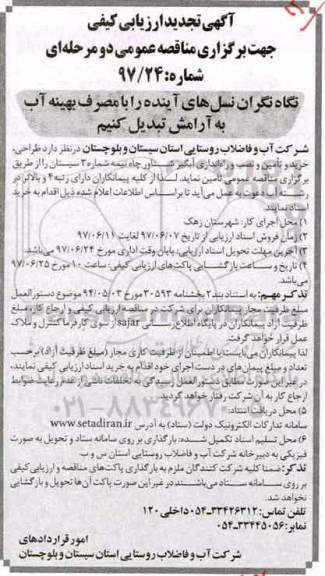 آگهی تجدید ارزیابی کیفی
جهت برگزاری مناقصه عمومی دو مرحله‌ای
شماره: ۹۷/۲۴
نگاه نگران نسل‌های آینده را با مصرف بهینه آب
به آرامش تبدیل کنیم
شرکت آب و فاضلاب روستایی استان سیستان و بلوچستان در نظر دارد طراحی،
خرید و تأمین و نصب و راه‌اندازی آبگیر شناور چاه نیمه شماره ۳ سیستان را از طریق
برگزاری مناقصه عمومی تأمین نماید. لذا از کلیه پیمانکاران دارای رتبه ۴ و بالاتر در
رشته آب دعوت به عمل می‌آید تا براساس اطلاعات اعلام شده ذیل اقدام به خرید
اسناد نمایند.
۱) محل اجرای کار: شهرستان زهک
۲) زمان فروش اسناد ارزیابی از تاریخ ۹۷/۰۶/۰۷ لغایت ۹۷/۰۶/۱۱
۳) آخرین مهلت تحویل اسناد ارزیابی: پایان وقت اداری مورخ ۹۷/۰۶/۲۴ می‌باشد.
۴) تاریخ و ساعت بازگشایی پاکت‌های ارزیابی کیفی: ساعت ۱۰ مورخ ۹۷/۰۶/۲۵
می‌باشد.
تذکر مهم: به استناد بند ۲ بخشنامه ۳۰۵۹۳ مورخ ۹۴/۰۵/۰۳ موضوع دستورالعمل
مبلغ ظرفیت مجاز پیمانکاران برای شرکت در مناقصه، ارزیابی کیفی و ارجاع کار، مبلغ
ظرفیت آزاد پیمانکاران در پایگاه اطلاع‌رسانی sajar از سوی کارفرما کنترل و ملاک
عمل قرار خواهد گرفت.
لذا پیمانکاران می‌بایست با اطمینان از ظرفیت کاری مجاز (مبلغ ظرفیت آزاد) برحسب
تعداد و مبلغ پیمان‌های در دست اجرای خود اقدام به خرید اسناد ارزیابی کیفی نمایند،
در غیر این صورت مطابق دستورالعمل رسیدگی به تخلفات ناشی از عدم رعایت ضوابط
ارجاع کار به آن شرکت رفتار خواهد گردید.
۵) محل دریافت اسناد:
سامانه تدارکات الکترونیک دولت (ستاد) به آدرس www.setadiran.ir
۶) محل تسلیم اسناد تکمیل شده: بارگذاری بر روی سامانه ستاد و تحویل به صورت
فیزیکی به دبیرخانه شرکت آب و فاضلاب روستایی استان س و ب.
تذکر: ضمنا کلیه شرکت کنندگان ملزم به بارگذاری پاکت‌های مناقصه و ارزیابی کیفی
بر روی سامانه ستاد می‌باشند در غیر این صورت پاکت آن‌ها تحویل و بازگشایی
نخواهد شد.
تلفن تماس: ۳۳۴۲۶۳۱۲-۰۵۴ داخلی ۱۲۰
نمابر: ۳۳۴۴۵۰۵۶-۰۵۴
امور قراردادهای
شرکت آب و فاضلاب روستایی استان سیستان و بلوچستان